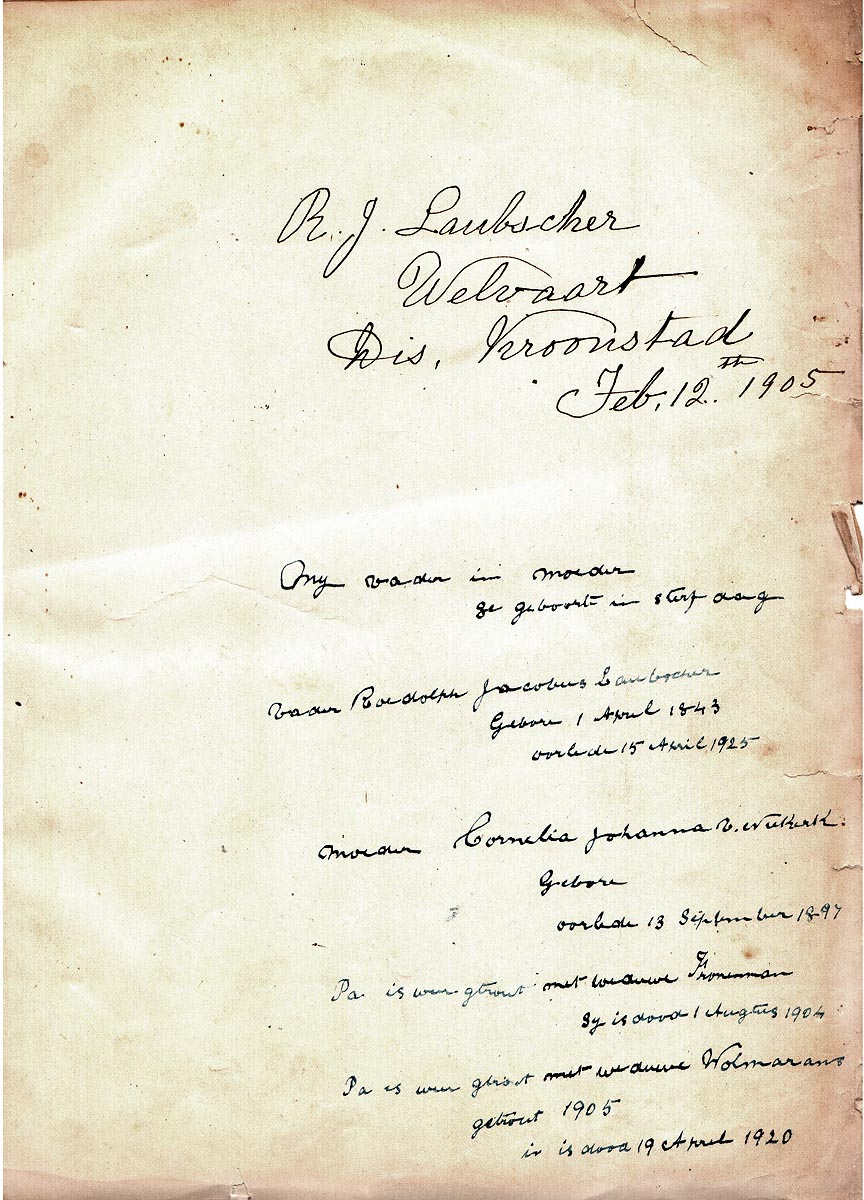 R. J. Laubscher
Welvaart
Dis, Kroonstad
Feb, 12.th 1905
My vader in moeder
ge geboorte in sterf daag
vader Roedolph Jacobus Laubscher
Gebore 1 April 1843
oorlede 15 April 1925
moeder Cornelia Johanna v. Niekerk.
Gebore
oorlede 13 September 1897
Pa is weer getrout met weduwe
Sy is dood 1 Augtus 1904
Pa is weer getrout met weduwe Wolmarans
getrout 1905
in is dood 19 April 1920